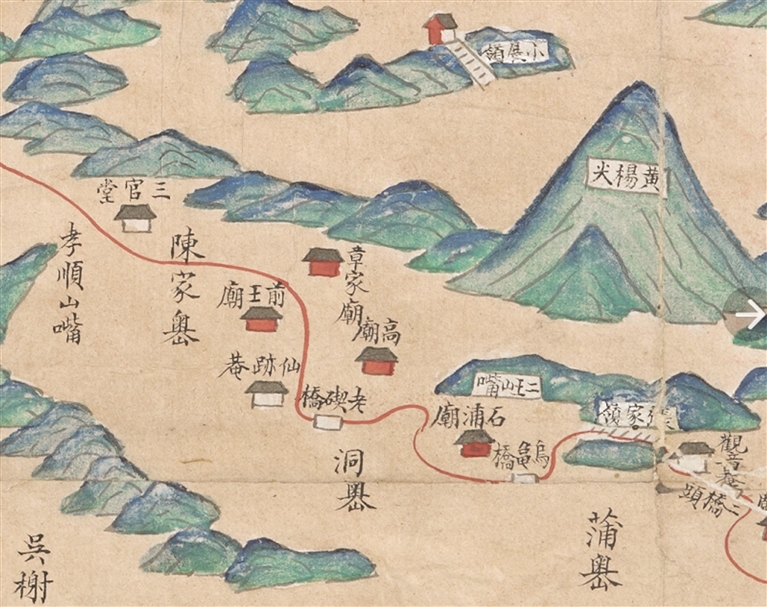 小展嶺
黃楊尖
三官堂
孝順山嘴
陳家嶴
章家廟
前王廟
高廟
仙跡菴
老碶橋
洞嶴
二王山嘴
石浦廟
烏龜橋
家嶺
觀音菴
二橋頭
蒲嶴
吳榭